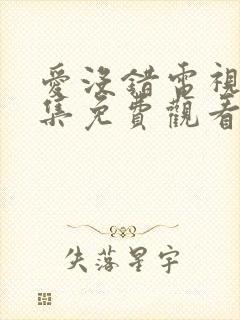 愛沒錯電視
集免費觀看
失落星宇